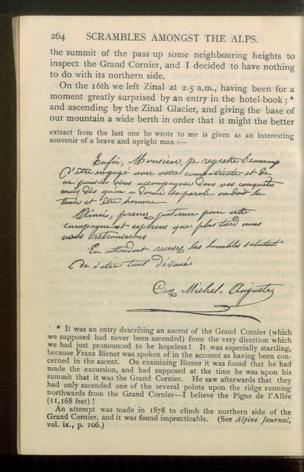 264 SCRAMBLES AMONGST THE ALPS.
the summit of the pass up some neighbouring heights to
inspect the Grand Cornier, and I decided to have nothing
to do with its northern side.
On the 16th we left Zinal at 2.5 a.m., having been for a
moment greatly surprised by an entry in the hotel-book; *
and ascending by the Zinal Glacier, and giving the base of
our mountain a wide berth in order that it might be better
extract from the last one he wrote to me is given as an interesting
souvenir of a brave and upright man :—
Enfin, Monsieur, je regrette beaucoup
d'être engagé avec votre compatriote et de
ne pouvoir vous accompagner dans vos conquêtes
mais dès qu'on a donné sa parole on doit la
tenir et être homme.
Ainsi, prenez patience pour cette
campagne et espérons que plus tard nous
nous retrouverons.
En attendant recevez les humbles salutations
de votre tout dévoué
Croz Michel-Auguste
* It was an entry describing an ascent of the Grand Cornier (which
we supposed had never been ascended) from the very direction which
we had just pronounced to be hopeless! It was especially startling,
because Franz Biener was spoken of in the account as having been con-
cerned in the ascent. On examining Biener it was found that he had
made the excursion, and had supposed at the time he was upon his
summit that it was the Grand Cornier. He saw afterwards that they
had only ascended one of the several points upon the ridge running
northwards from the Grand Cornier—I believe the Pigne de l'Allée
(11,168 feet)!
An attempt was made in 1878 to climb the northern side of the
Grand Cornier, and it was found impracticable. (See Alpine Journal,
vol. ix., p. 106.)